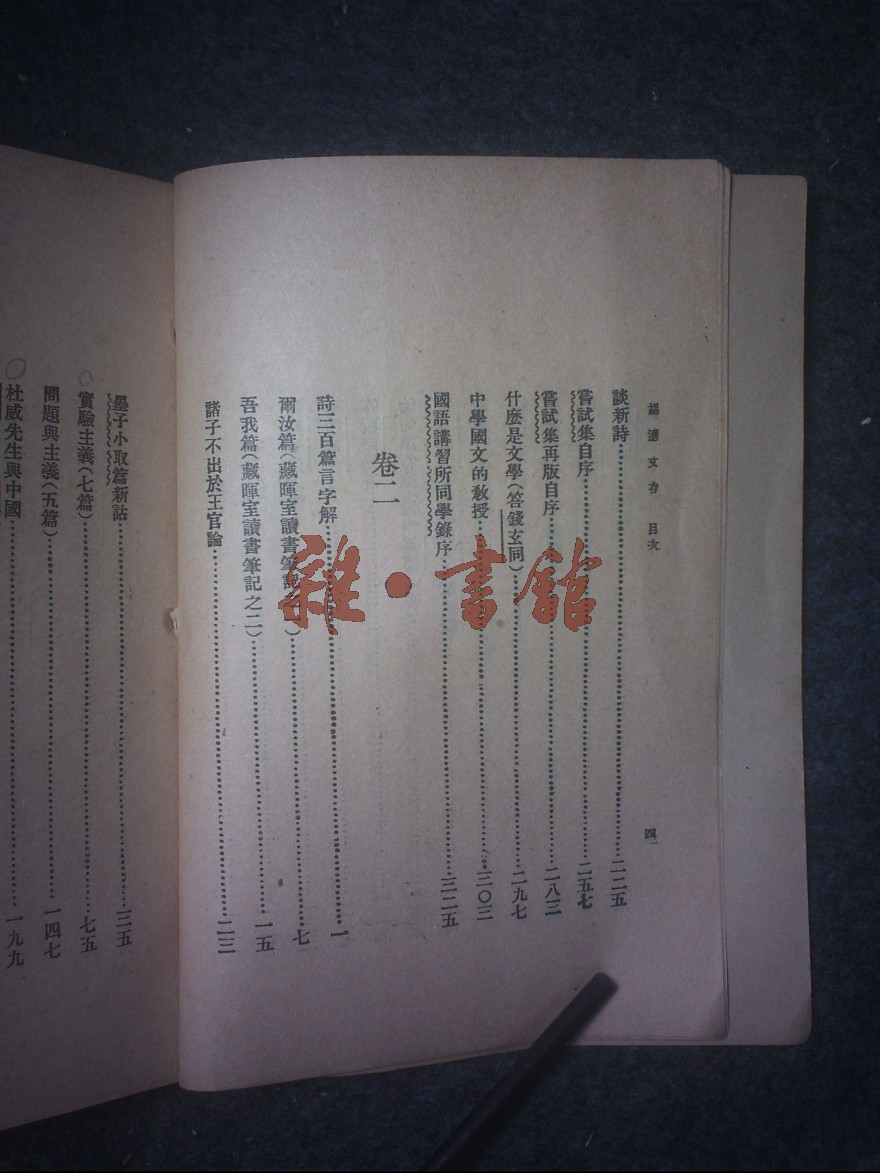 胡適文存 目次
四
談新詩……二二五
嘗試集自序……二五七
嘗試集再版自序……二八三
什麽是文學(答錢玄同)……二九七
中學國文的教授……三〇三
國語講習所同學錄序……三二五
卷二
詩三百篇言字解……一
爾汝篇(藏暉室讀書筆記之一)……七
吾我篇(藏暉室讀書筆記之二)……一五
諸子不出於王官論……二三
墨子小取篇新詁……三五
實驗主義(七篇)……七五
問題與主義(五篇)……一四七
杜威先生與中國……一九九
雜·書館